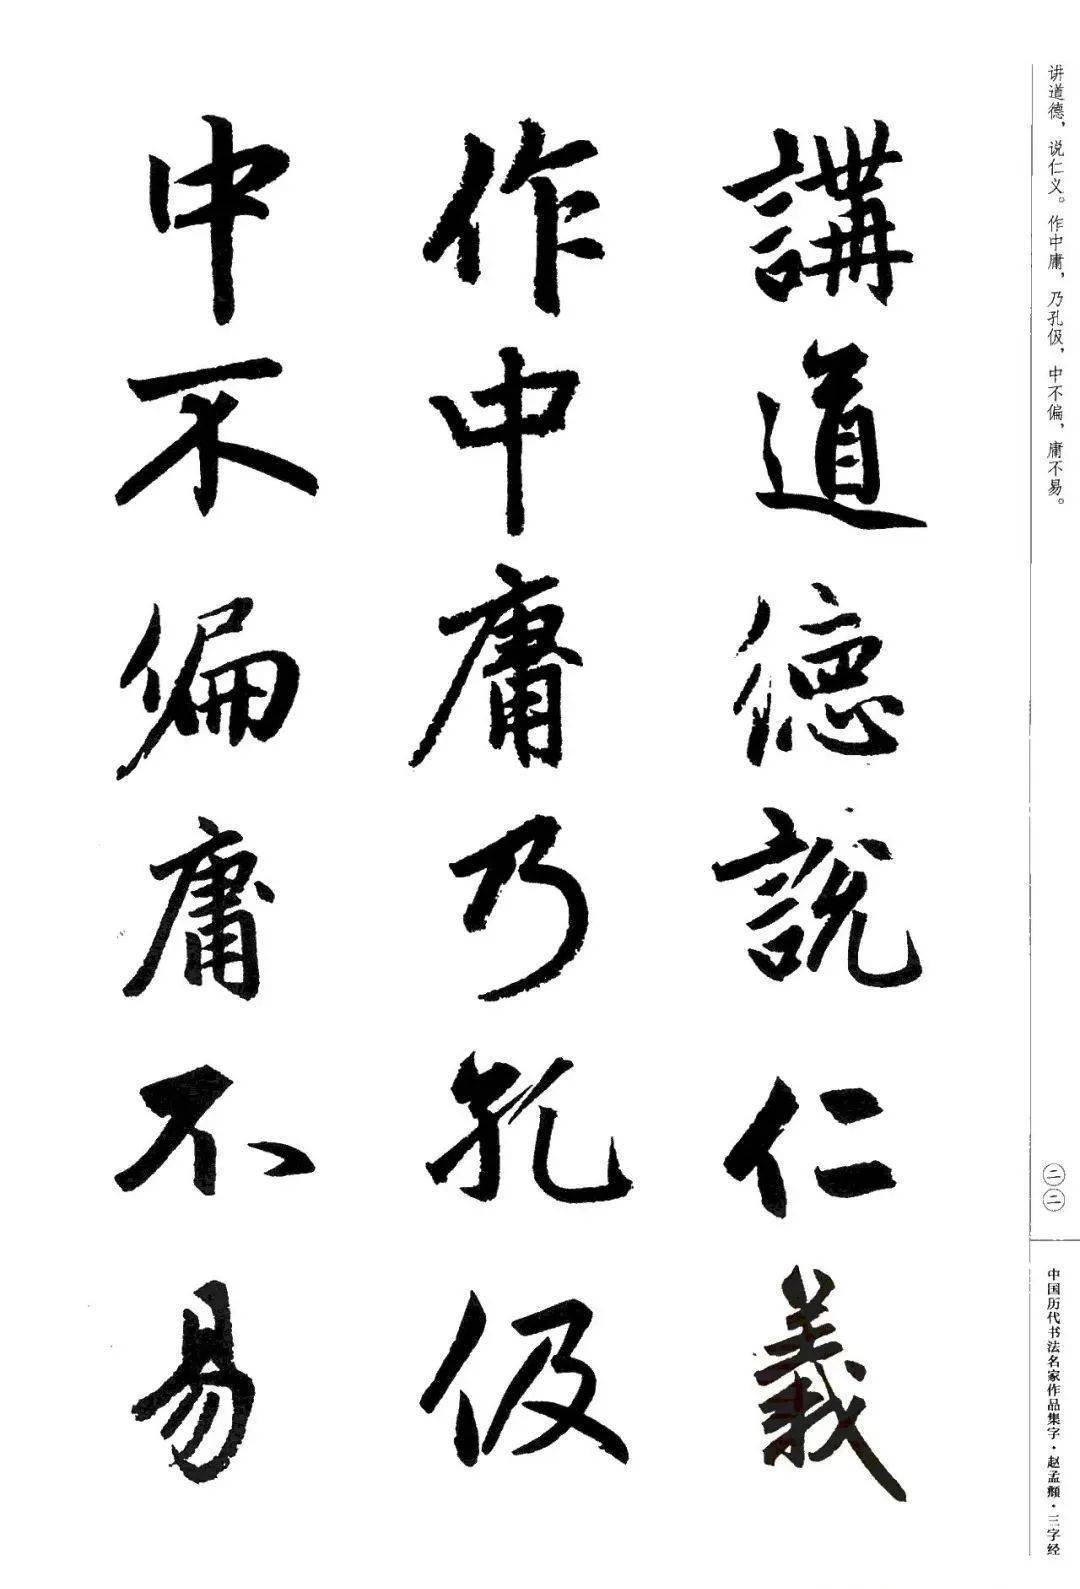 讲道德，说仁义。作中庸，乃孔伋，中不偏，庸不易。
講道德說仁義
作中庸乃孔伋
中不偏庸不易
二二
中国历代书法名家作品集字·赵孟頫·三字经